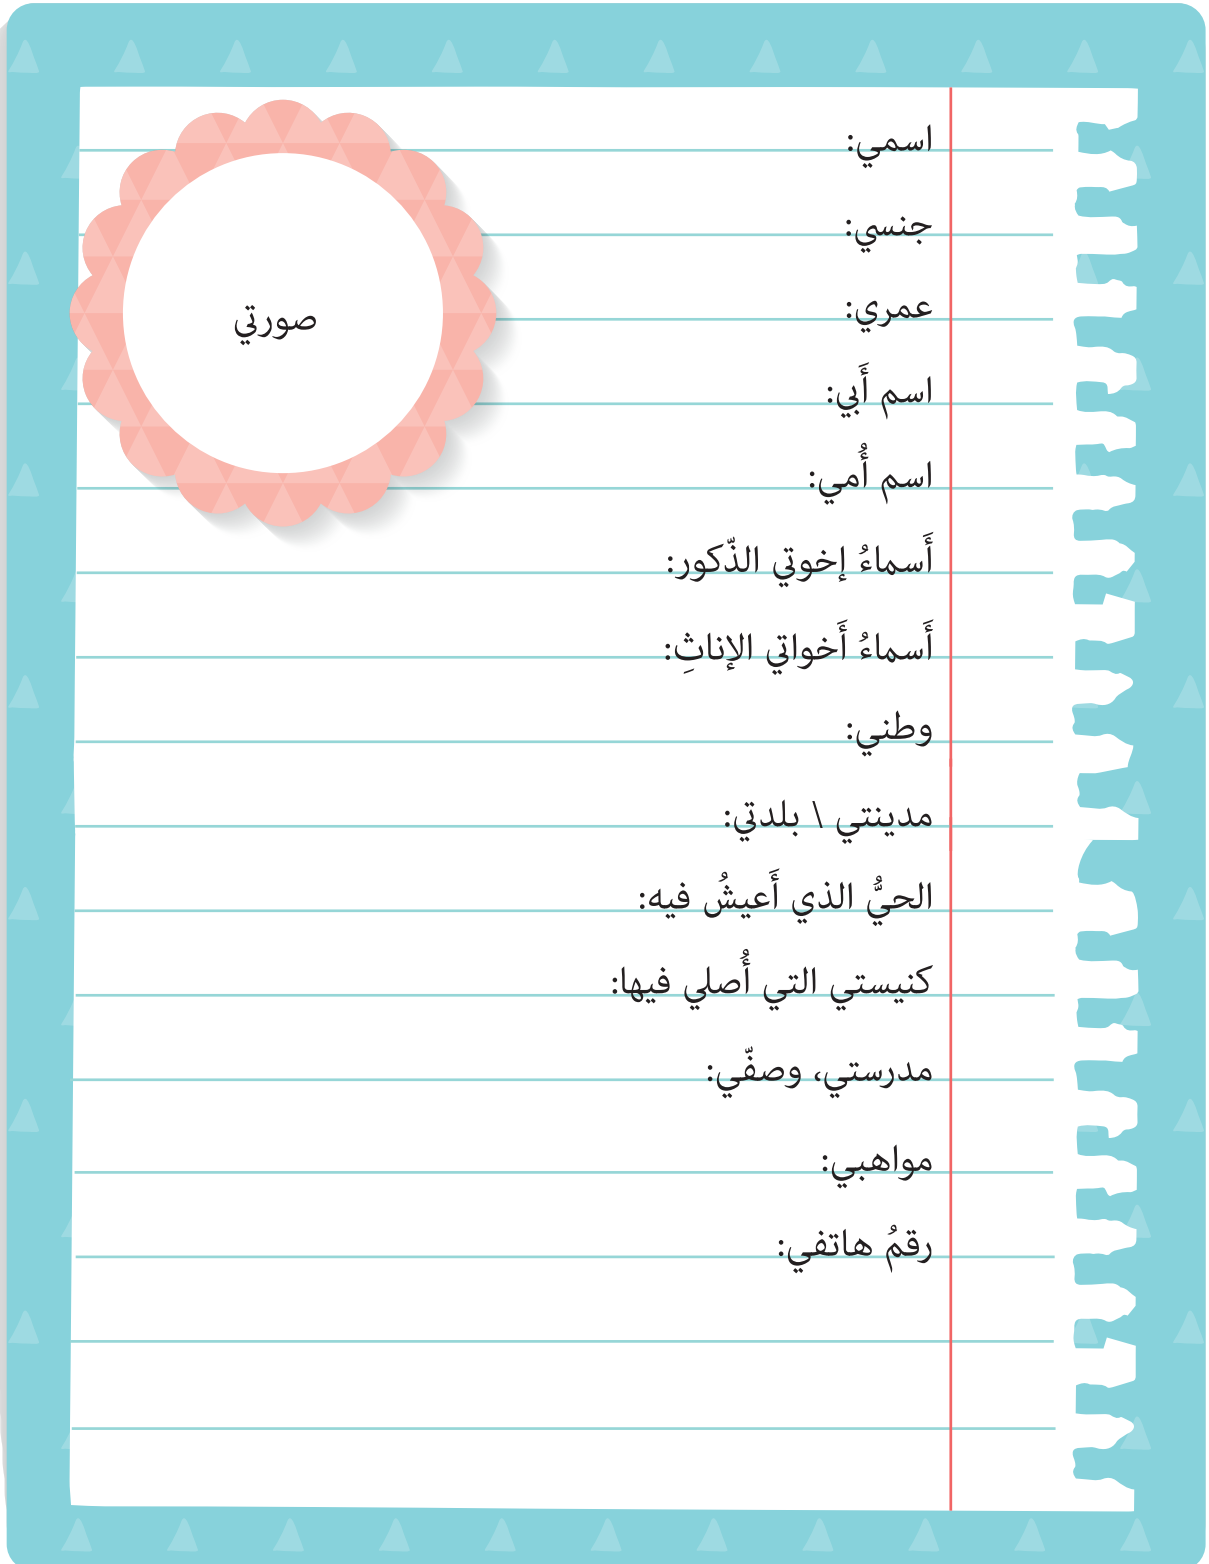 اسمي:
جنسي:
عمري:
صورتي
اسم أَبي:
اسم أُمي:
أَسماءُ إخوتي الذّكور:
أَسماءُ أَخواتي الإناثِ:
وطني:
مدينتي \ بلدتي:
الحيُّ الذي أَعيشُ فيه:
كنيستي التي أُصلي فيها:
مدرستي، وصفّي:
مواهبي:
رقمُ هاتفي: